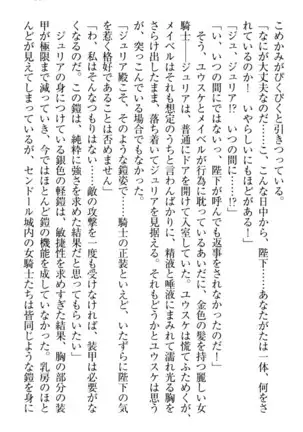 こめかみがぴくぴくと引きつっている。
「なにが大丈夫なのだ……こ、こんな日中から、陛下……あなたがたは一体、何をさ
れているのか! いやらしいにもほどがある!」
「ジュ、ジュリア!? いつの間に……!?」
「い、いつの間にではない、陛下が呼んでも返事をされなか
ったのだ!」
そう、ユウスケとメイベルが行為に耽っているあいだに、金色の髪を持つ麗しい女
騎士――ジュリアは、普通にドアを開けて入室していた。ユウスケは慌てふためくが、
メイベルはそれも想定のうちと言わんばかりに、精液と唾液にまみれて濡れ光る胸を
さらけ出したまま、落ち着いてジュリアを観察する。それもどうかとユウスケは思う
が、突っこんでいる場合でもなかった。
「ジュリア殿こそ、そのような鎧姿で……騎士の正装といえど、いたずらに陛下の気
を惹く恰好であることは否めません」
「わ、私はそんなつもりはない……敵の攻撃を一度も受けなければ、装甲は必要がな
くなるのだ。これは、純粋に強さを求めた結果だと思ってもらいたい」
ジュリアの身につけている銀色の軽鎧は、敏捷性を求めすぎた結果、胸の部分の装
甲が極限まで減っていき、今ではほとんど鎧の機能を成していなかった。乳房のほと
んどが見えてしまっているが、センドール城内の女騎士たちは皆同じような鎧を身に